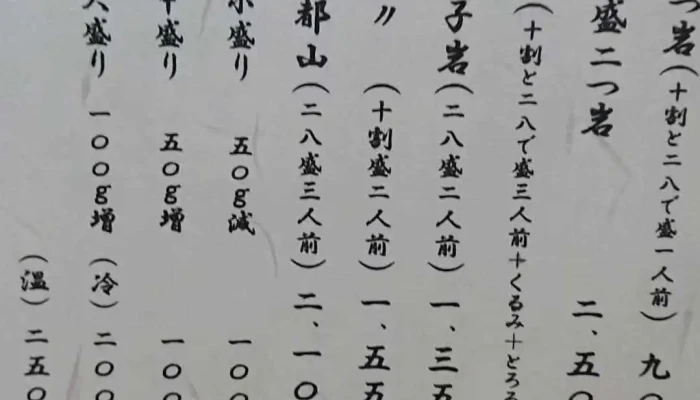 つ岩（十割と二八で盛一人前）九〇
盛二つ岩 二、五〇
（十割と二八で盛三人前＋くるみ＋とろろ
子岩（二八盛二人前）一、三五
〃（十割盛二人前）一、五五
都山（二八盛三人前）二、一〇
小盛り 五〇g減 一〇〇
中盛り 五〇g増 一〇〇
大盛り 一〇〇g増（冷）二〇〇
（温）二五〇